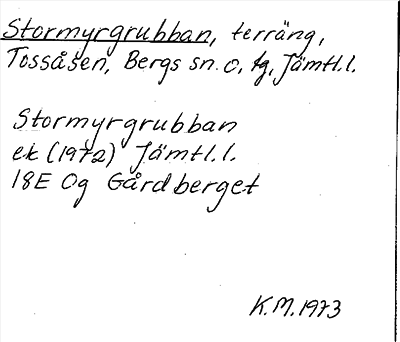 Stormyrgrubban, terräng,
Tossåsen, Bergs sn. o, tg, Jämtl.l.
Stormyrgrubban
ek (1972) Jämtl.l.
18E Og Gårdberget
K.M. 1973